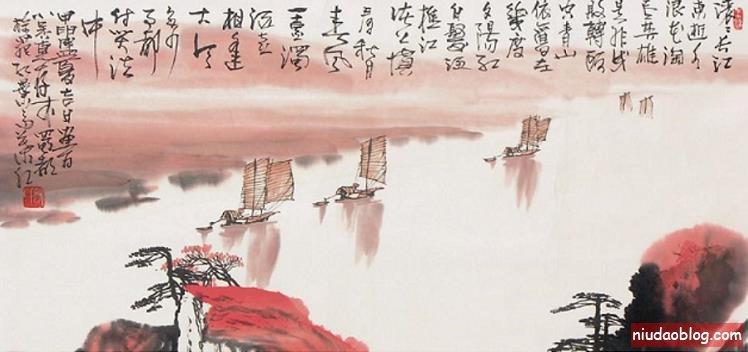 滚滚长江
东逝水
浪花淘
尽英雄
是非成
败转頭
空青山
依舊在
幾度
夕陽红
白髮渔
樵江
渚上慣
看秋月
春风
一壶濁
酒喜
相逢
古今
多少
事都
付笑談
中
niudaoblog.com